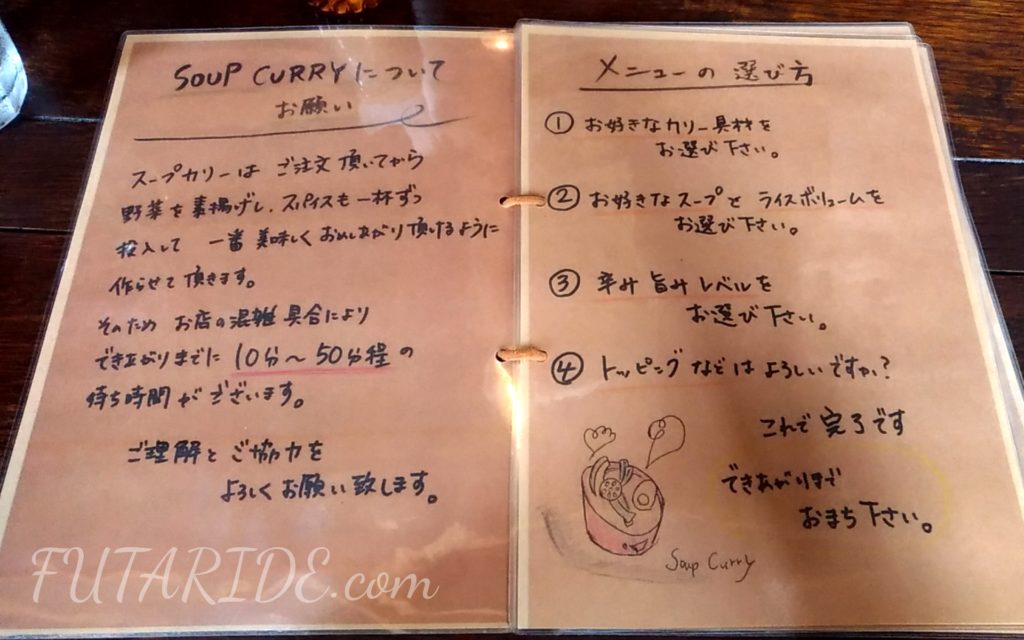 SOUP CURRYについて
お願い
スープカリーは ご注文 頂いてから
野菜を 素揚げし、スパイスも一杯ずつ
投入して 一番 美味しく おめしあがり 頂けるように
作らせて 頂きます。
そのため お店の混雑 具合により
できあがりまでに 10分〜50分程の
待ち時間が ございます。
ご理解と ご協力を
よろしく お願い 致します。
メニューの 選び方
① お好きなカリー具材を
お選び 下さい。
② お好きな スープと ライスボリュームを
お選び下さい。
③ 辛み 旨み レベルを
お選び 下さい。
④ トッピング などは よろしいですか?
これで 完了です
できあがりまで
おまち 下さい。
Soup Curry
FUTARIDE.com